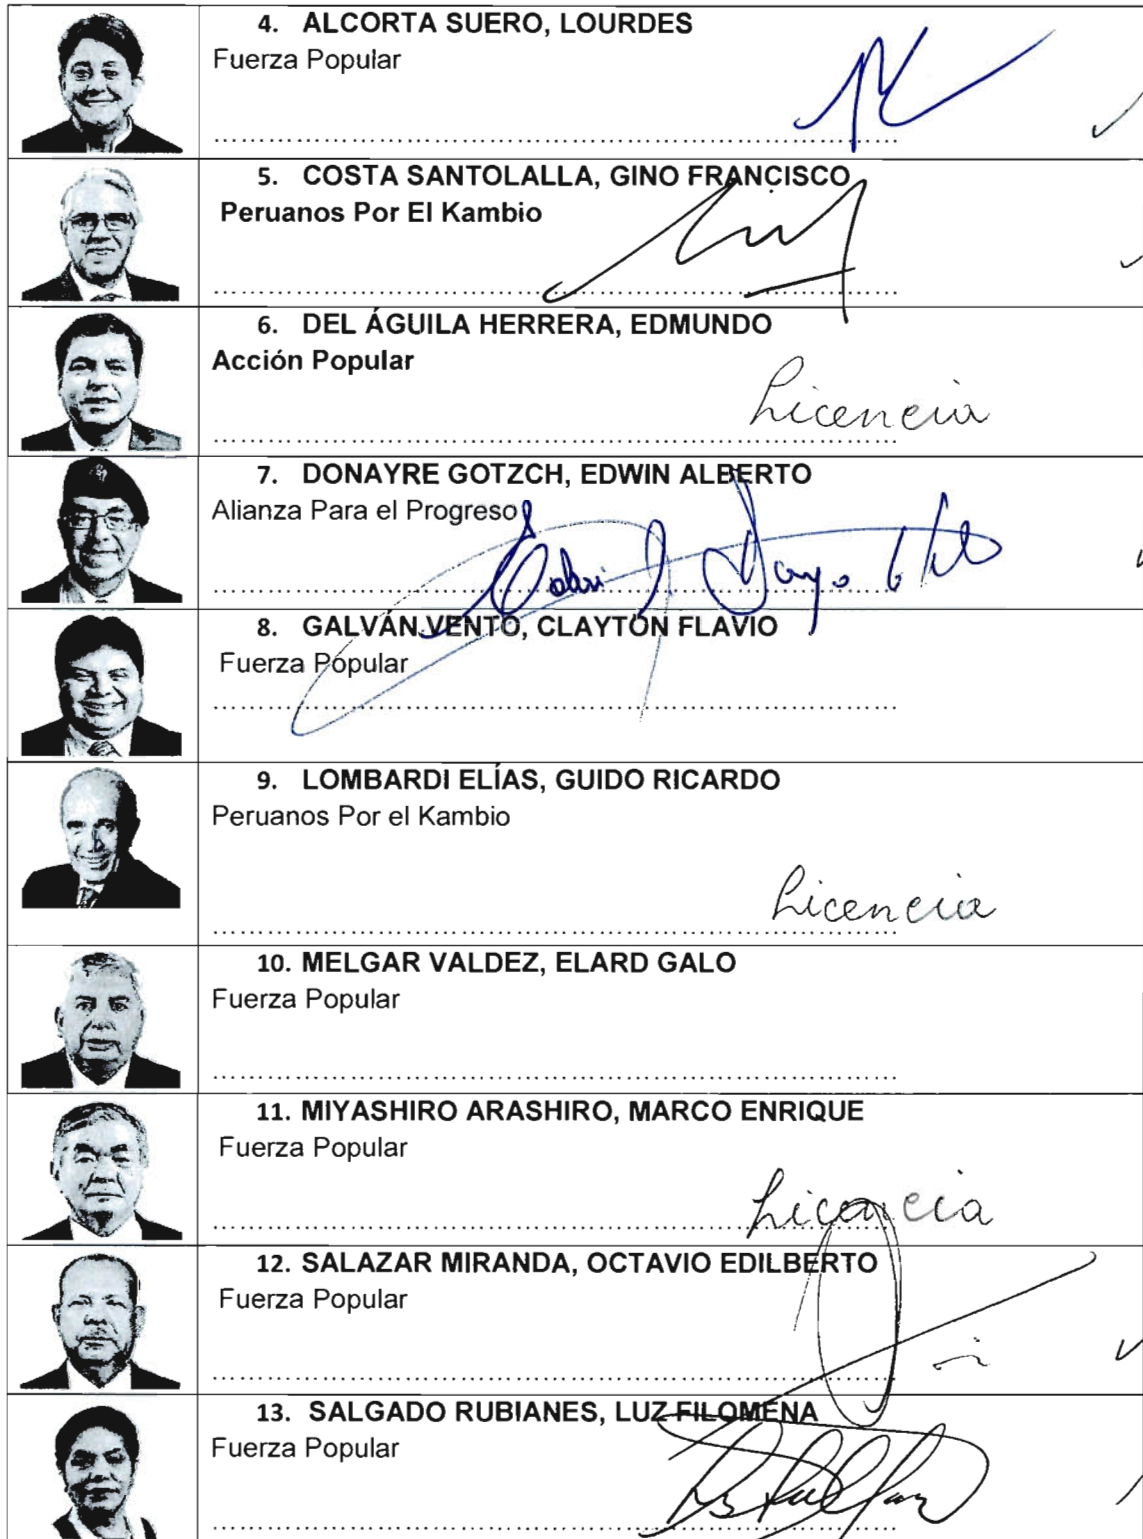 4. ALCORTA SUERO, LOURDES
Fuerza Popular
5. COSTA SANTOLALLA, GINO FRANCISCO
Peruanos Por El Kambio
6. DEL ÁGUILA HERRERA, EDMUNDO
Acción Popular
Licencia
7. DONAYRE GOTZCH, EDWIN ALBERTO
Alianza Para el Progreso
8. GALVÁN VENTO, CLAYTON FLAVIO
Fuerza Popular
9. LOMBARDI ELÍAS, GUIDO RICARDO
Peruanos Por el Kambio
Licencia
10. MELGAR VALDEZ, ELARD GALO
Fuerza Popular
11. MIYASHIRO ARASHIRO, MARCO ENRIQUE
Fuerza Popular
Licencia
12. SALAZAR MIRANDA, OCTAVIO EDILBERTO
Fuerza Popular
13. SALGADO RUBIANES, LUZ FILOMENA
Fuerza Popular